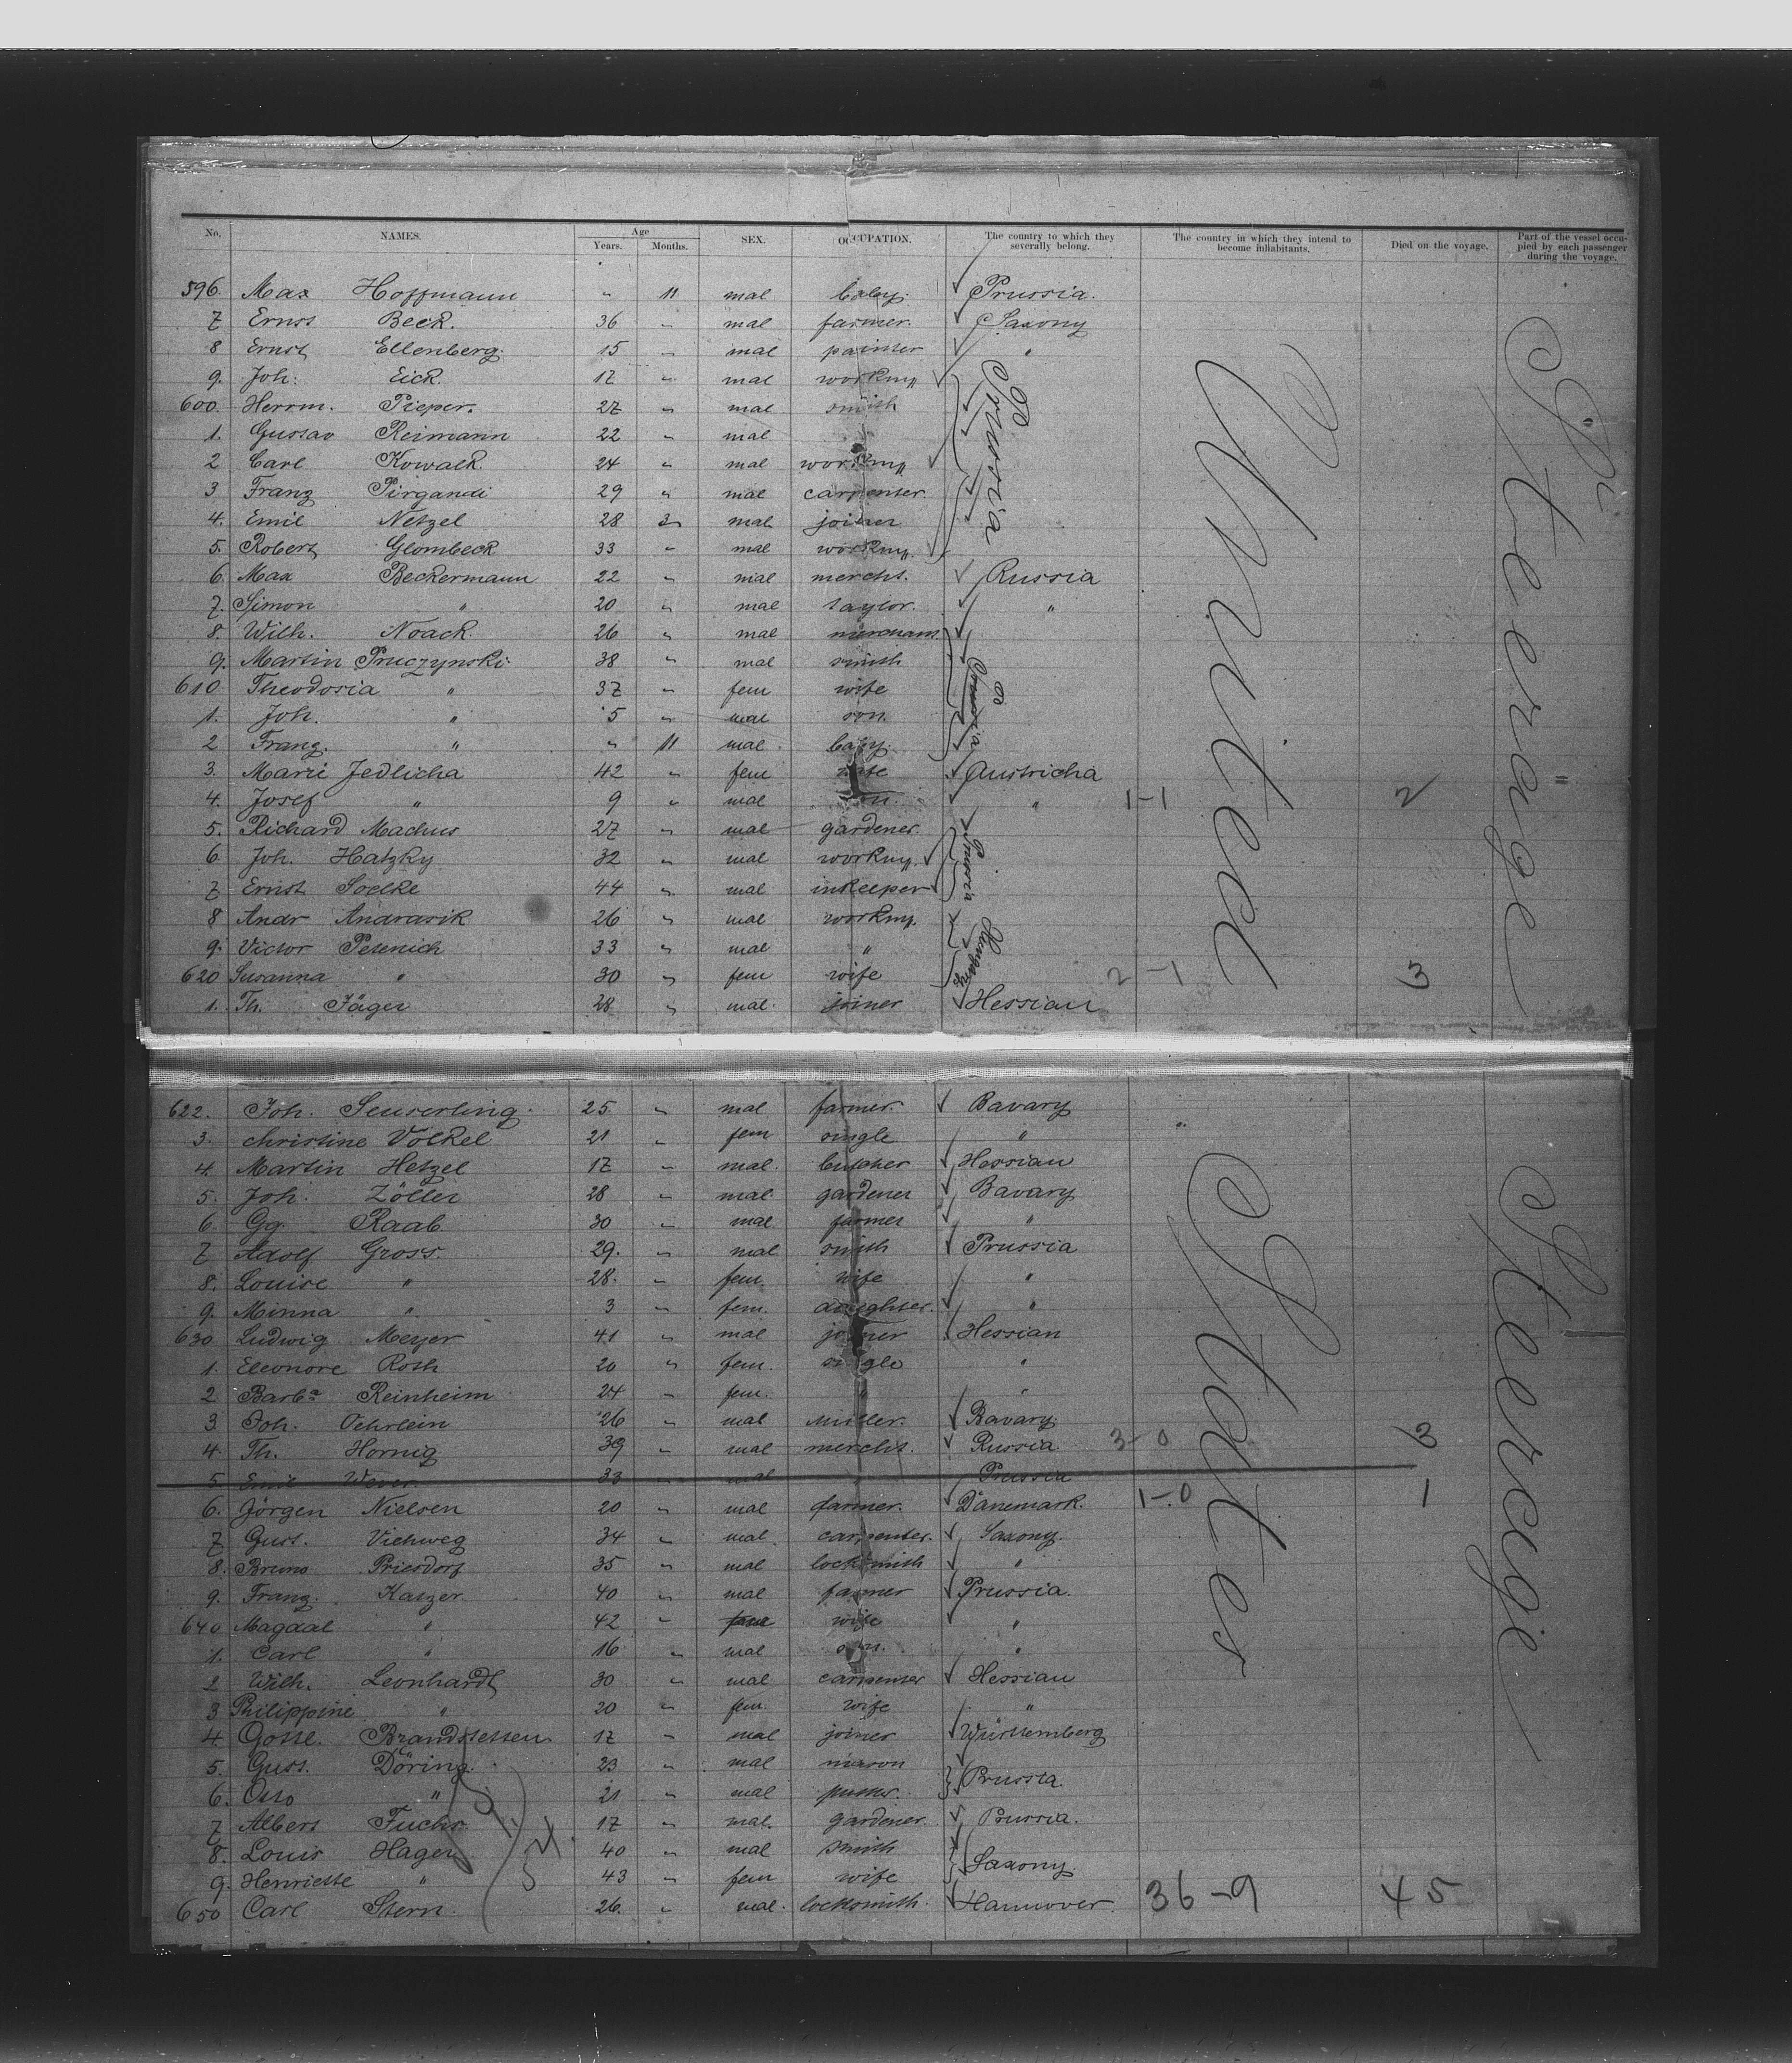 No. NAMES. Age Years. Months. SEX. OCCUPATION. The country to which they severally belong. The country in which they intend to become inhabitants. Died on the voyage. Part of the vessel occupied by each passenger during the voyage.
596. Max Hoffmann " 11 mal baby. Prussia.
7 Ernst Beck. 36 " mal farmer. Saxony
8 Ernst Ellenberg. 15 " mal painter "
9. Joh. Eick. 17 " mal workm
600. Herrm. Pieper. 27 " mal smith Prussia
1. Gustav Reimann 22 " mal
2 Carl Kowalk. 24 " mal workm
3 Franz Pirgandi 29 " mal carpenter.
4. Emil Netzel 28 " mal joiner
5. Robert Glombeck 33 " mal workm
6. Max Beckermann 22 " mal mercht. Russia
7. Simon " 20 " mal taylor. "
8. Wilh. Noack. 26 " mal merchant
9. Martin Pruczynski 38 " mal smith
610 Theodosia " 37 " fem wife Prussia
1. Joh. " 5 " mal son.
2 Franz. " " 11 mal baby.
3. Marie Jedlicha 42 " fem wife Austricha
4. Josef " 9 " mal son. " 1-1 2
5. Richard Machus 27 " mal gardener.
6. Joh. Hatzky 32 " mal workm Prussia
7 Ernst 44 " mal inkeeper
8 Andr Andrasik 26 " mal workm. Hungary
9. Victor Petenich 33 " mal "
620 Susanna " 30 " fem wife 2-1 3
1. Th. Jäger 28 " mal. joiner Hessian
United
Steerage
622. Joh. Seuserling. 25 " mal farmer. Bavary
3. christine Völkel 21 " fem single "
4. Martin Hetzel 17 " mal. butcher Hessian
5. Joh. Zöller 28 " mal. gardener Bavary
6 Gg. Raab 30 " mal farmer "
7 Adolf Gross. 29. " mal smith Prussia
8. Louise " 28. " fem. wife "
9. Minna " 3 " fem. daughter. "
630 Ludwig Meyer 41 " mal joiner Hessian
1. Eleonore Roth 20 " fem. single "
2 Barba Reinheim 24 " fem. " "
3 Joh. Oehrlein 26 " mal Miller. Bavary.
4. Th. Hornig 39 " mal mercht. Russia 3-0 3
5 Emil Weser 33 " mal " Prussia
6. Jörgen Nielsen 20 " mal farmer. Dänemark. 1-0 1
7 Gust. Viehweg 34 " mal carpenter. Saxony.
8. Bruno Priesdorf 35 " mal locksmith "
9. Franz. Katzer 40 " mal farmer Prussia.
640 Magdal " 42 " fem wife "
1. Carl " 16 " mal son. "
2 Wilh. Leonhardt 30 " mal carpenter Hessian
3 Philippine " 20 " fem. wife "
4. Gottl. Brandstetten 17 " mal joiner Württemberg
5. Gust. Döring. 23 " mal mason Prussia.
6. Otto " 21 " mal
7 Albert Fuchs. 17 " mal. gardener. Prussia.
8. Louis Hagen 40 " mal smith Saxony.
9. Henriette " 43 " fem wife
650 Carl Stern. 26. " mal. locksmith Hannover. 36-9 45
States
Steerage